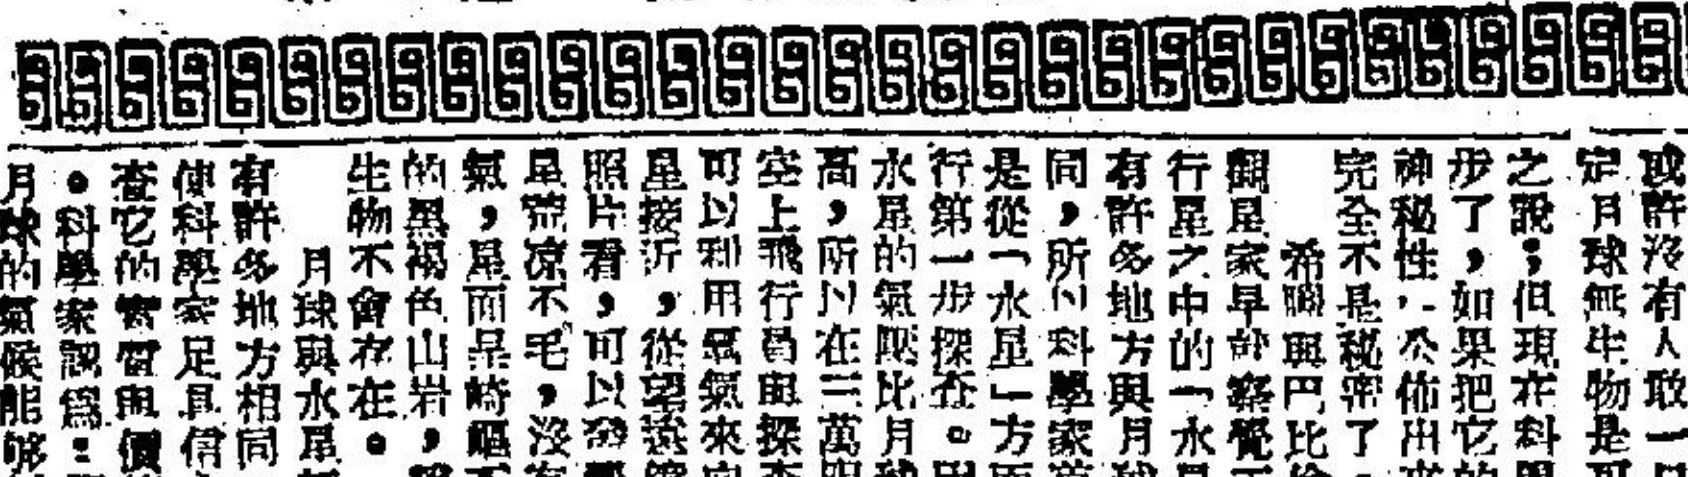 或許沒有人敢一口
定月球無生物是可
之說；但現在科學
步了，如果把它的
神秘性，公佈出來
完全不是秘密了。
希臘與巴比倫
觀星家早就察覺
行星之中的「水星
有許多地方與月球
同，所以科學家
是從「水星」方面
行第一步探查。
水星的氣壓比月球
高，所以在三萬
空上飛行員與探查
可以利用氫氣來
星接近，從望遠鏡
照片看，可以發
星荒凉不毛，沒有
氣，星面是崎嶇不
的黑褐色山岩，
生物不會存在。
月球與水星
有許多地方相同
使科學家足具信
查它的實質與價
。科學家認爲：
月球的氣候能够